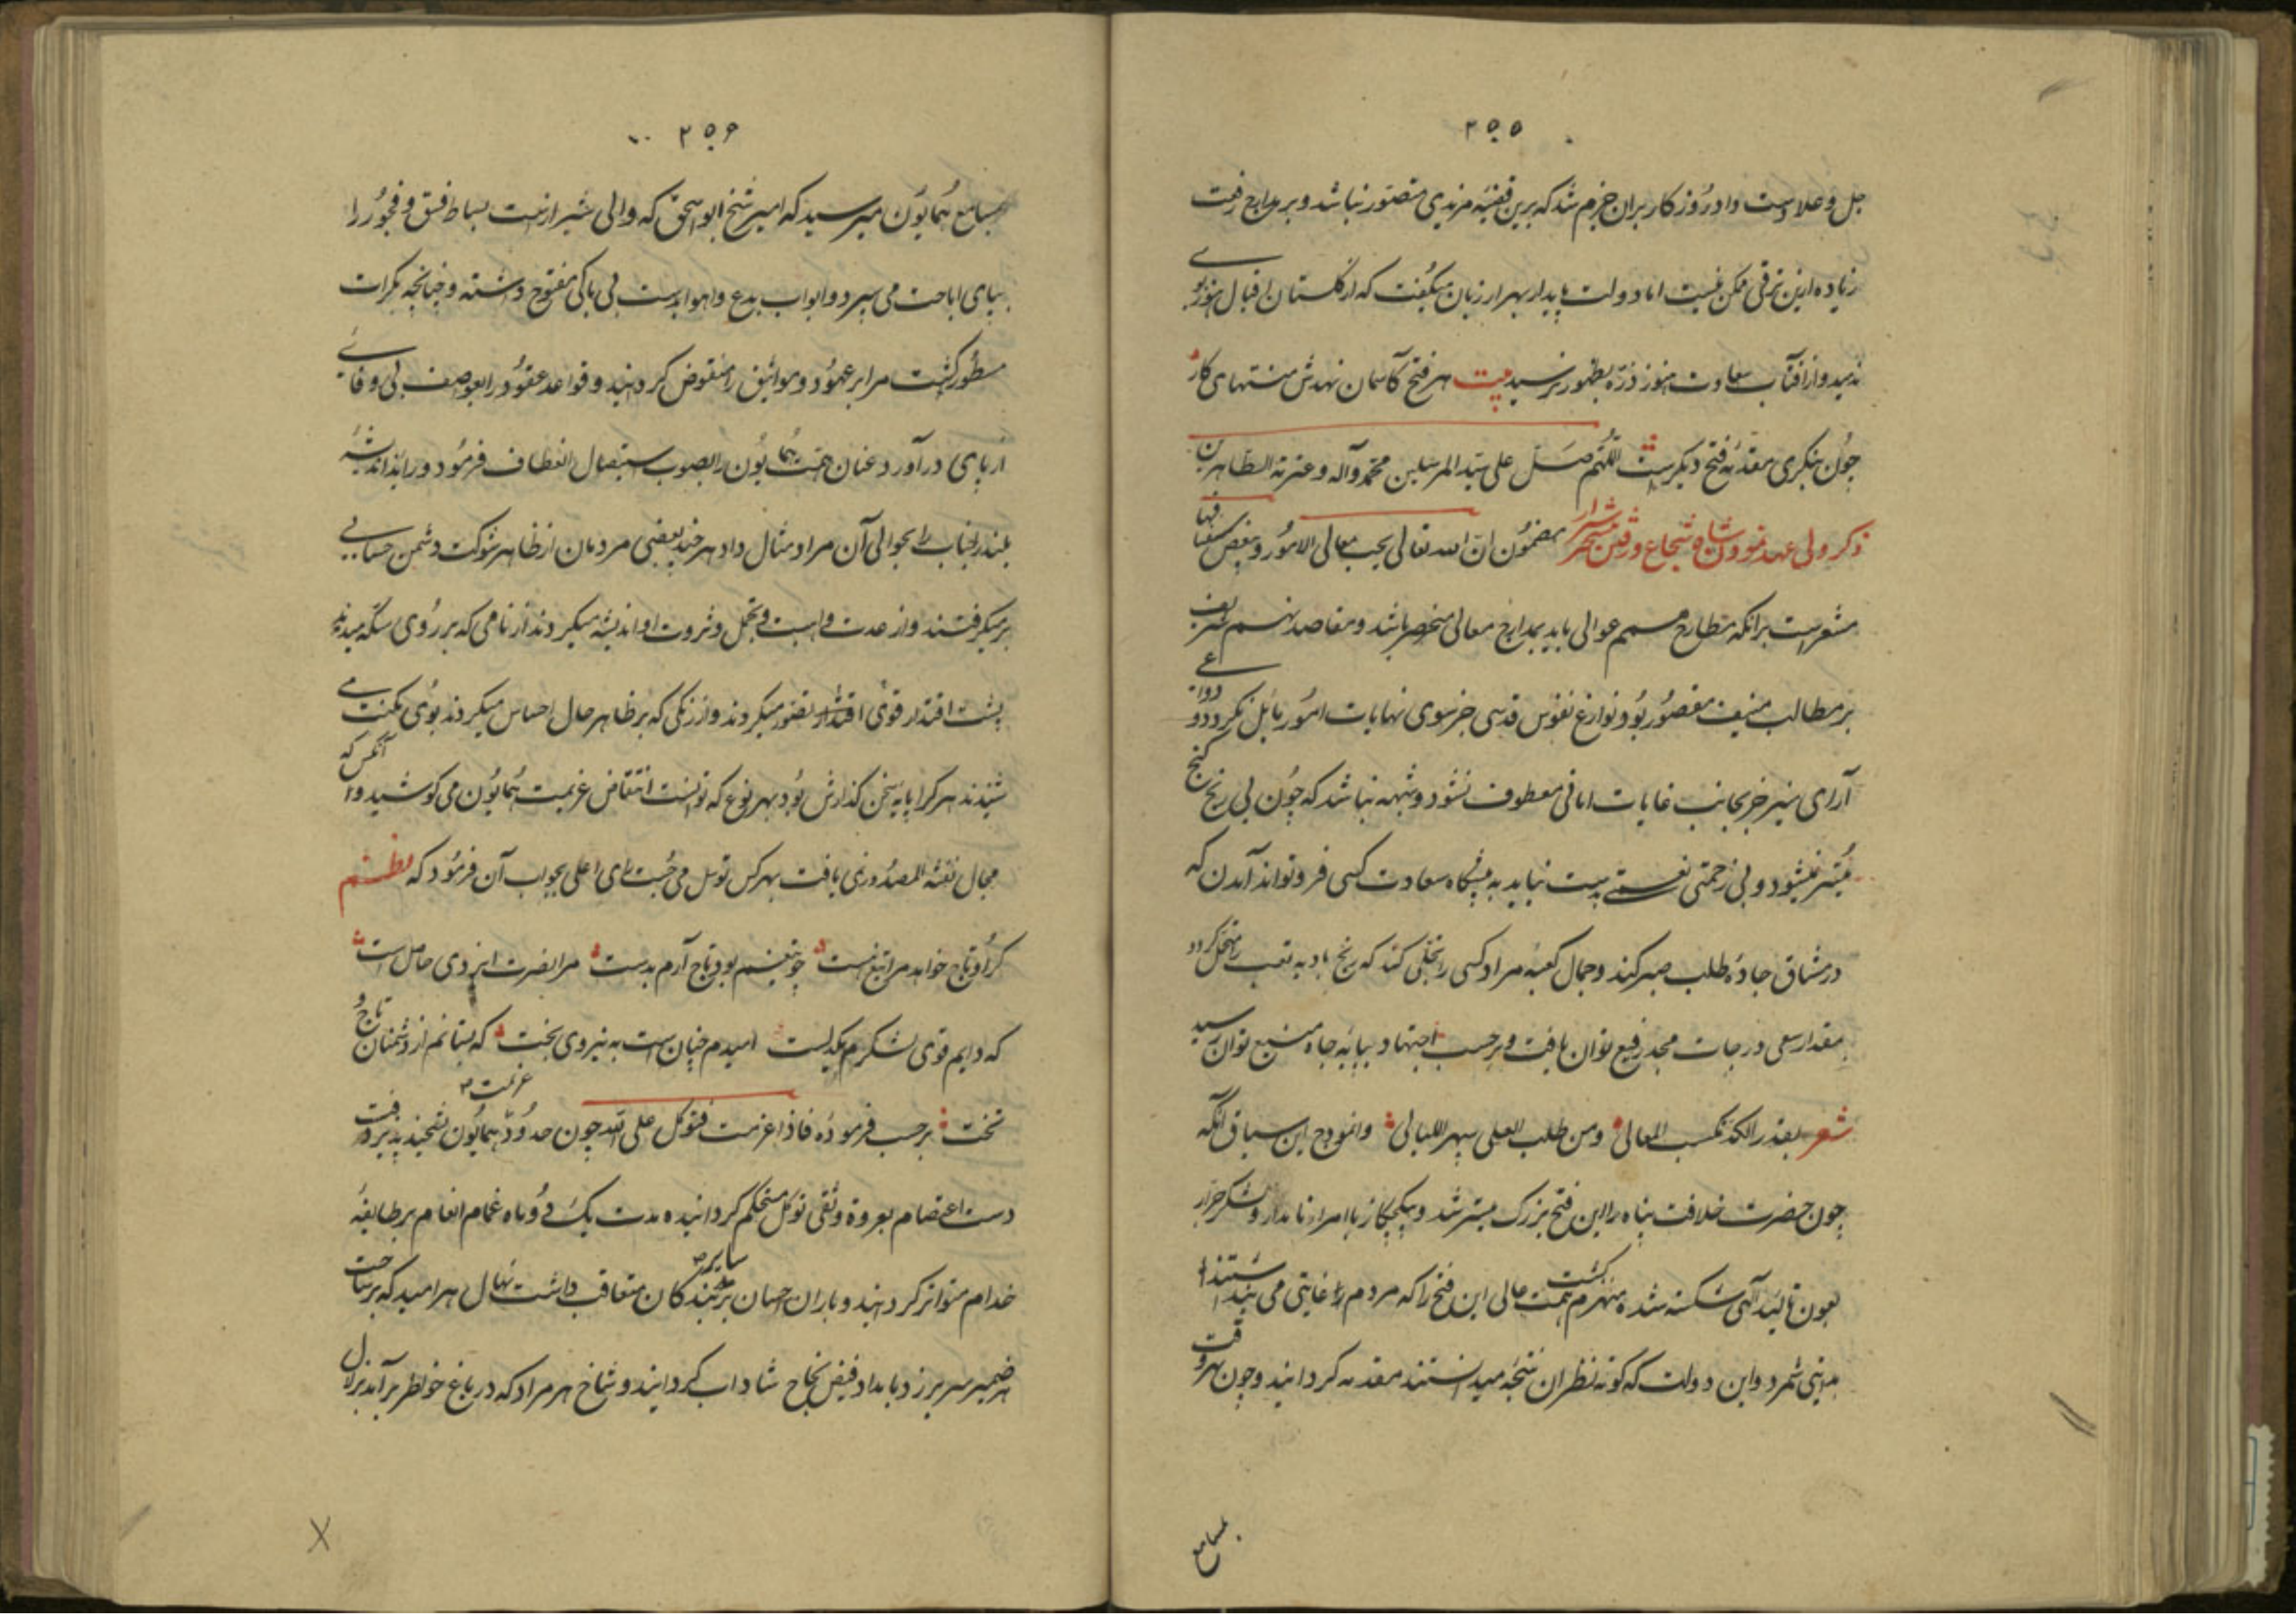 ۲۵۵
جل و علاوست و اد روزکار بران جزم شد که برین قضیه مزیدی متصور نباشد و بر مدارج رفعت
زیاده ازین ترقی ممکن نیست اما دولت پایدار بهزار زبان میکفت که از کلستان اقبال هنوز بوی
ندمید و از افتاب سعادت هنوز ذره بظهور نرسید بیت هر فتح کاسمان نهدش منتهای کار
چون بنکری مقدمه فتح دیکرست اللهم صل علی سید المرسلین محمد و آله و عترته الطاهرین
ذکر ولی عهد نمودن شاه شجاع و رفتن شیراز بمضمون ان الله تعالی یحب معالی الامور و یبغض سفسافها
مشعرست برانکه مطارح همم عوالی باید بمدارج معالی منحصر باشد و مقاصد نهم شریف
بر مطالب منیف مقصور بود و نوازع نفوس قدسی جز سوی نهایات امور مایل نکردد و دواعی
آرای منیر جز بجانب غایات امانی معطوف نشود و شبهه نباشد که چون بی رنج کنج
میسر نمیشود و بی زحمتی نعمتی بدست نیاید به پیشکاه سعادت کسی فرو تواند آمدن که
در مشاق جاده طلب صبر کند و جمال کعبه مراد کسی را تجلی کند که رنج بادیه تعب را متحمل کردد
بمقدار سعی درجات مجد رفیع توان یافت و برحسب اجتهاد بپایه جاه منیع توان رسید
شعر بقدر الکد تکتسب المعالی ومن طلب العلی سهر اللیالی و انموذج این سیاق آنکه
چون حضرت خلافت پناه را این فتح بزرک میسر شد و بیکبار با امراء نامدار و لشکر جرار
بعون تایید آلهی شکسته شده منهزم کشت همت عالی این فتح را که مردم را غایتی می دانستند
مبادی شمرد و این دولت که کوته نظران نتیجه میدانستند مقدمه کردانید و چون بهر وقت
بمسامع
۲۵۶
بمسامع همایون میرسید که امیر شیخ ابواسحق که والی شیرازست بساط فسق و فجور را
بپای اباحت می سپرد و ابواب بدع و اهوا بدست بی باکی مفتوح داشته و چنانچه بکرات
مسطور کشت مرایر عهود و مواثیق را منقوض کردانید و قواعد عقود را بعواصف بی وفایی
از پای درآورد عنان همت همایون را بصوب استیصال انعطاف فرمود و رای
بلند جناب را بحوالی آن مراد مثال داد هرچند بعضی مردمان از ظاهر شوکت دشمن حسابی
برمیکرفتند و از عدت و اهبت و تجمل و ثروت او اندیشه میکردند از نامی که بر روی سکه میدیدند
پشت اقتدار قوی اقتدار تصور میکردند و از رنکی که بر ظاهر حال احساس میکردند بوی مکنت می
شنیدند هر کرا پایه سخن کذارش بود بهر نوع که توانست انتقاض عزیمت همایون می کوشید و آنکس که
مجال نفثة المصدوری یافت بهر کس توسل می جست رای اعلی بجواب آن فرمود که نظم
کر او تاج خواهد مرا تیغ هست چو تیغم بود تاج آرم بدست مرا نصرت ایزدی حاصل است
که دایم قوی لشکرم یکدلست امیدم چنان است به نیروی بخت که بستانم از دشمنان تاج و
تخت برحسب فرموده فاذا عزمت فتوکل علی الله چون حدود عزیمت همایون تشحیذ پذیرفت
دست اعتصام بعروة وثقی توکل مستحکم کردانیده مدت یک دو ماه غمام انعام بر طایفه
خدام متواتر کردانید و باران احسان بر سایر بندکان متعاقب داشت نهال هر امید که بر ساحت
ضمیر سر برزد بامداد فیض نجاح شاداب کردانید و شاخ هر مراد که در باغ خواطر برآمد بزلال